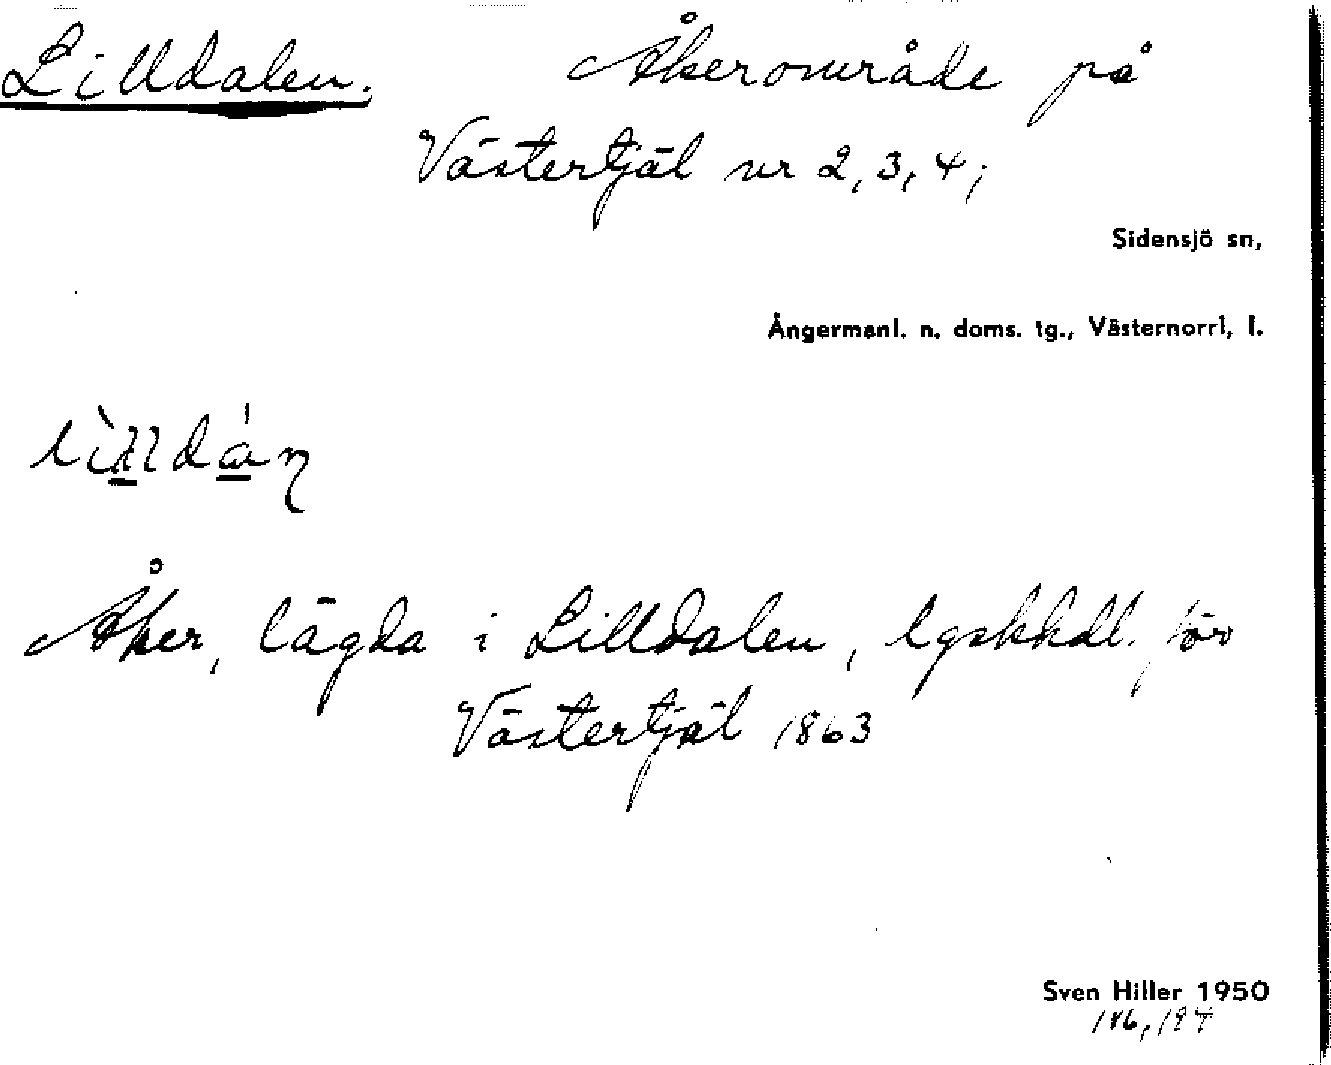 Lilldalen. Åkerområde på
Västertjäl nr 2, 3, 4;
Sidensjö sn,
Ångermanl. n. doms. tg., Västernorrl. l.
Åker, lägda i Lilldalen, lgskhdl. för
Västertjäl 1863
Sven Hiller 1950
186, 194